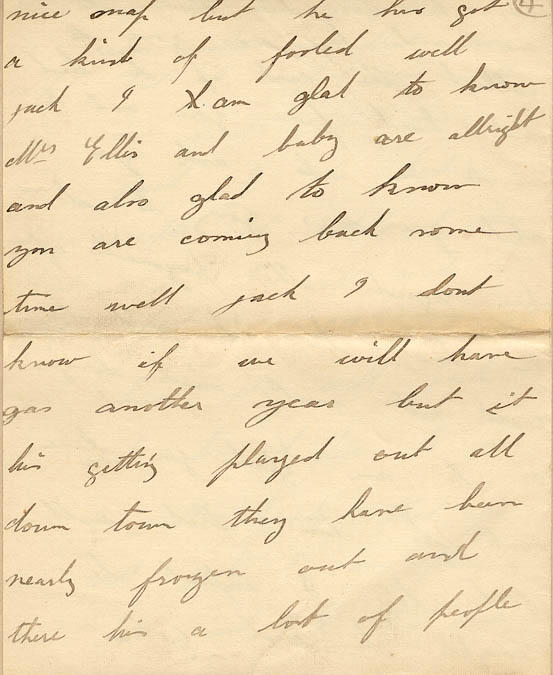 4
nice map but he has got
a kind of fooled well
jack I X am glad to know
Mrs Ellis and baby are allright
and also glad to know
you are coming back some
time well jack I dont
know if we will have
gas another year but it
his getting played out all
down town they have been
nearly frozen out and
there his a lost of people